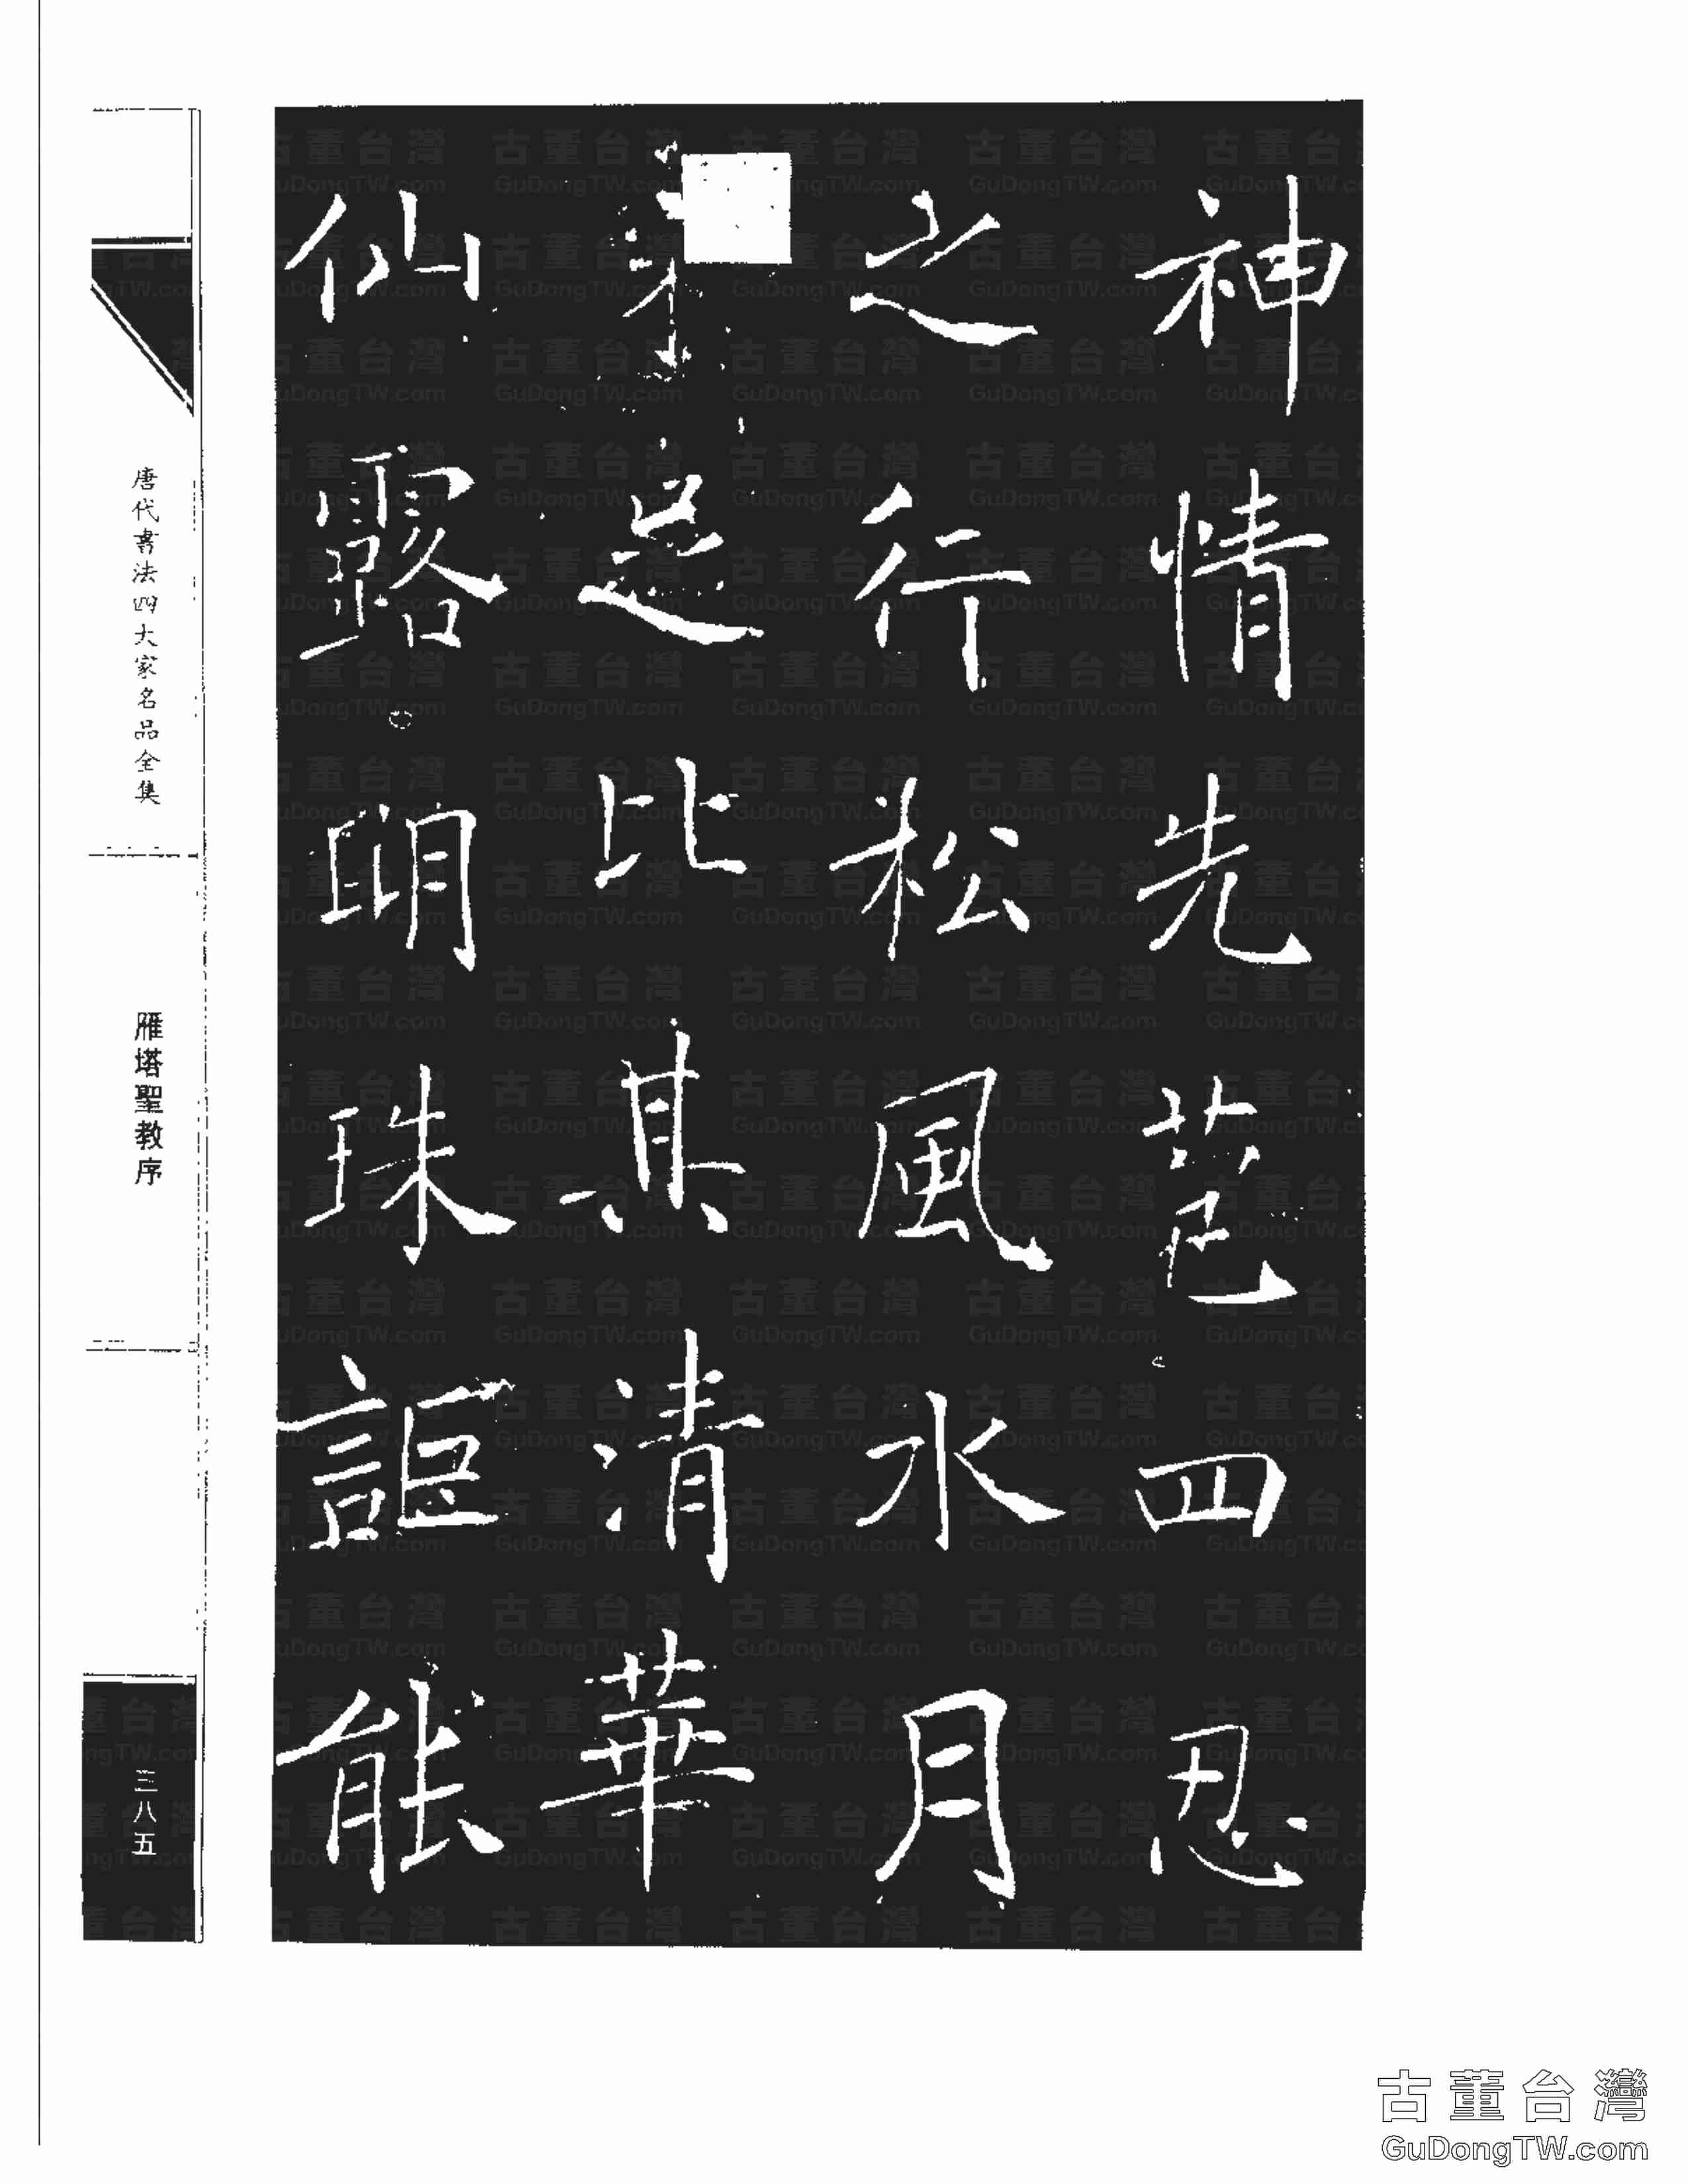 神情先苞四忍
之行松風水月
未足比其清華
仙露明珠詎能
唐代書法四大家名品全集
雁塔聖教序
三八五
古董台灣
GuDongTW.com